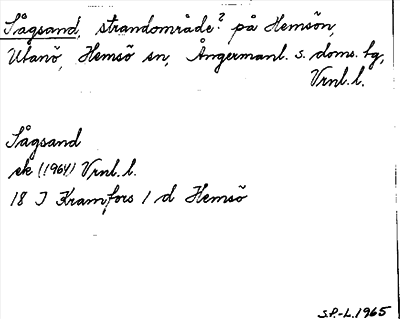 Sågsand, strandområde? på Hemsön,
Utanö, Hemsö sn, Ångermanl. s. doms. tg,
Vrnl. l.
Sågsand
ek (1964) Vrnl. l.
18 J Kramfors 1 d Hemsö
S.P.-L. 1965